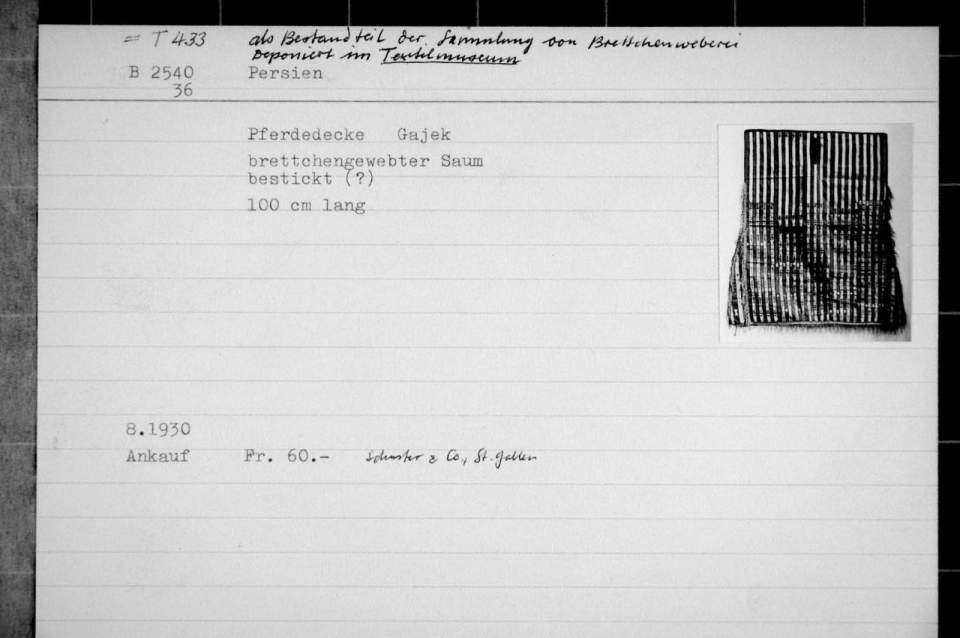 = T 433 als Bestandteil der Sammlung von Brettchenweberei
Deponiert im Textilmuseum
B 2540 Persien
36
Pferdedecke Gajek
brettchengewebter Saum
bestickt (?)
100 cm lang
8.1930
Ankauf Fr. 60.- Schuster & Co., St. Gallen